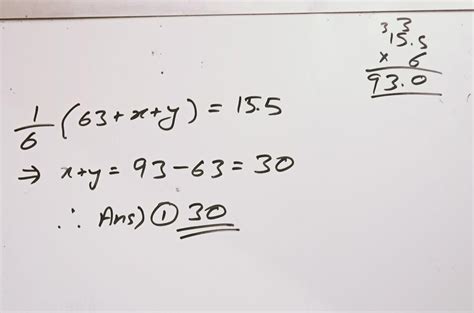 3 3
15.5
× 6
93.0
1/6 (63+x+y) = 15.5
⇒ x+y = 93-63 = 30
∴ Ans) ① 30